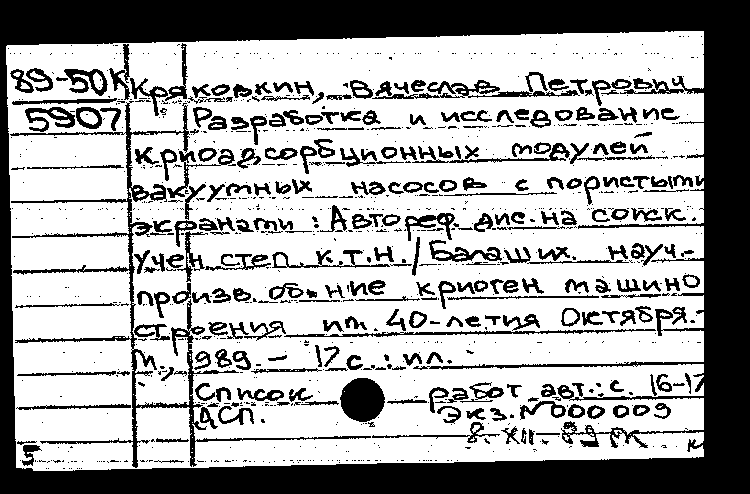 89-50К Кряковкин, Вячеслав Петрович
5907 Разработка и исследование
криоадсорбционных модулей
вакуумных насосов с пористыми
экранами: Автореф. дис. на соиск.
учен. степ. к.т.н. / Балаших. науч.-
произв. об-ние криоген. машино
строения им. 40-летия Октября.-
М., 1989. - 17 с.: ил.
Список работ авт.: с. 16-17
ДСП. Экз. N 000009
8. XII. 89